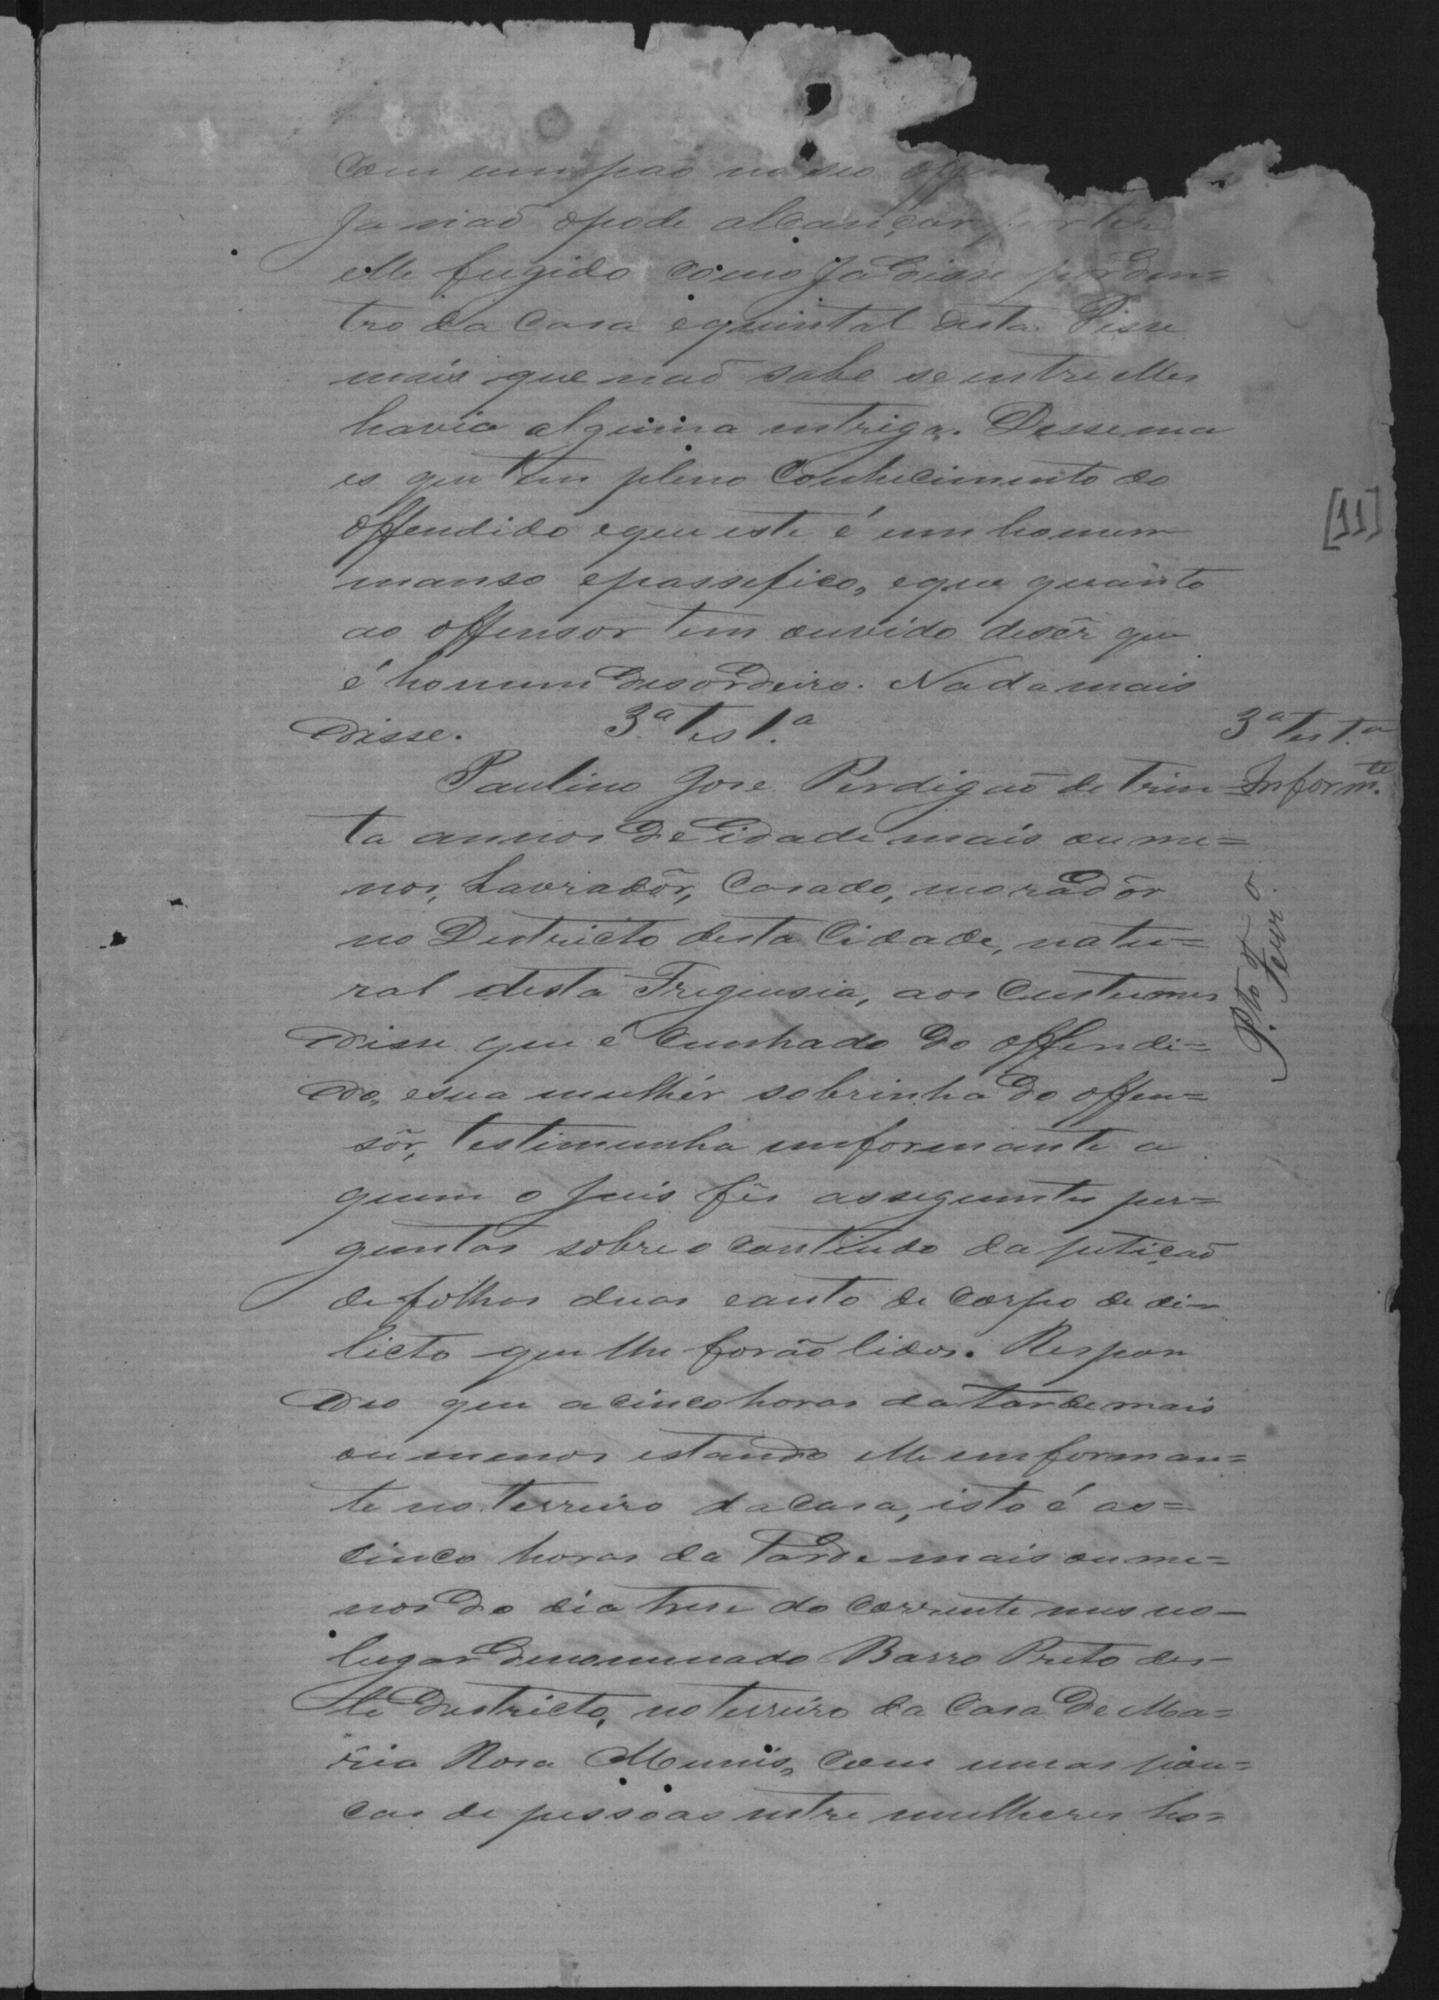 Com um páo na mão
Ja não o pode alcançar por ter
elle fugido como Ja disse por den=
tro da Casa e quintal desta. Disse
mais que não sabe se entre elles
havia alguma entriga. Disse ma
es que tem pleno Conhecimento do
offendido e que este é um homem
manso e passifico, e que quanto
ao offensor tem ouvido desêr que
é homem desordeiro. Nada mais
Disse. 3ª Test.ª
3ª Test.ª
Informte.
Paulino Jose Perdigaõ de trin
ta annos de Eidade mais ou me=
nos, Lavradôr, Casado, moradôr
no Districto desta Cidade, natu=
ral desta Fregensia, aos Custumes
Disse que é Cunhado do offendi=
do, e sua mulhér sobrinha do offen=
sôr, testimunha emformante a
quem o Juis fês as seguintes per=
guntas sobre o contiudo da petiçaõ
de folhas duas e auto de Corpo de di=
licto que lhe foraõ lidos. Respon
Deo que a cinco horas da tarde mais
ou menos estando elle emforman=
te no terreiro da Casa, isto é as=
cinco horas da tarde mais ou me=
nos do dia trese do Corrente mes no=
lugar denominado Barro Preto des=
te Destricto, no terreiro da Casa de Ma=
ria Rosa Munis, com umas pou=
cas de pessoas entre mulheres ho=
[11]